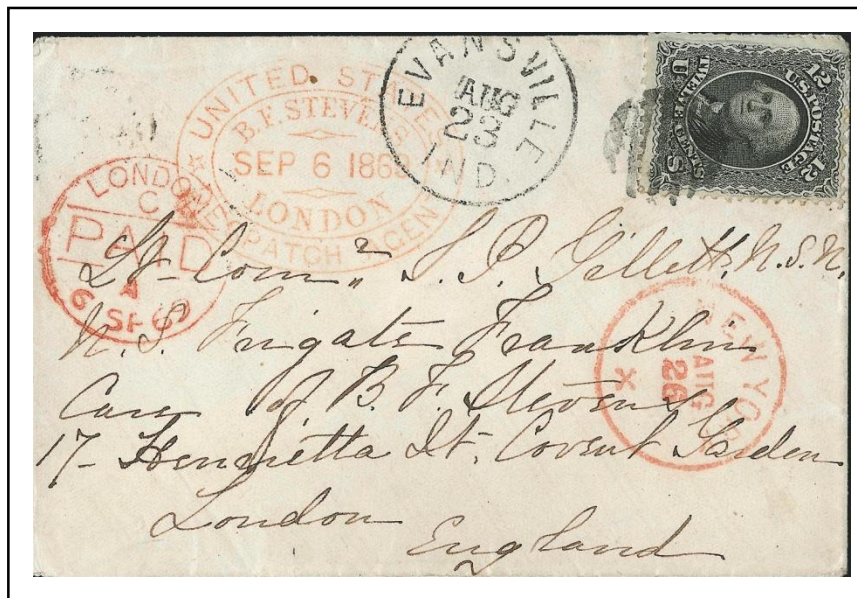 UNITED STATES
B.F. STEVENS
SEP 6 186
LONDON
DESPATCH AGENT
EVANSVILLE
AUG
23
IND.
12 U.S. POSTAGE 12
U TWELVE CENTS S
LONDON
C
PAID
A
6 SP 69
Lt-Com" S. P. Gillett, U.S.N.
U.S. Frigate Franklin
NEW YORK
AUG
26
Care of B. F. Stevens
17- Henrietta St. Covent Garden
London
England